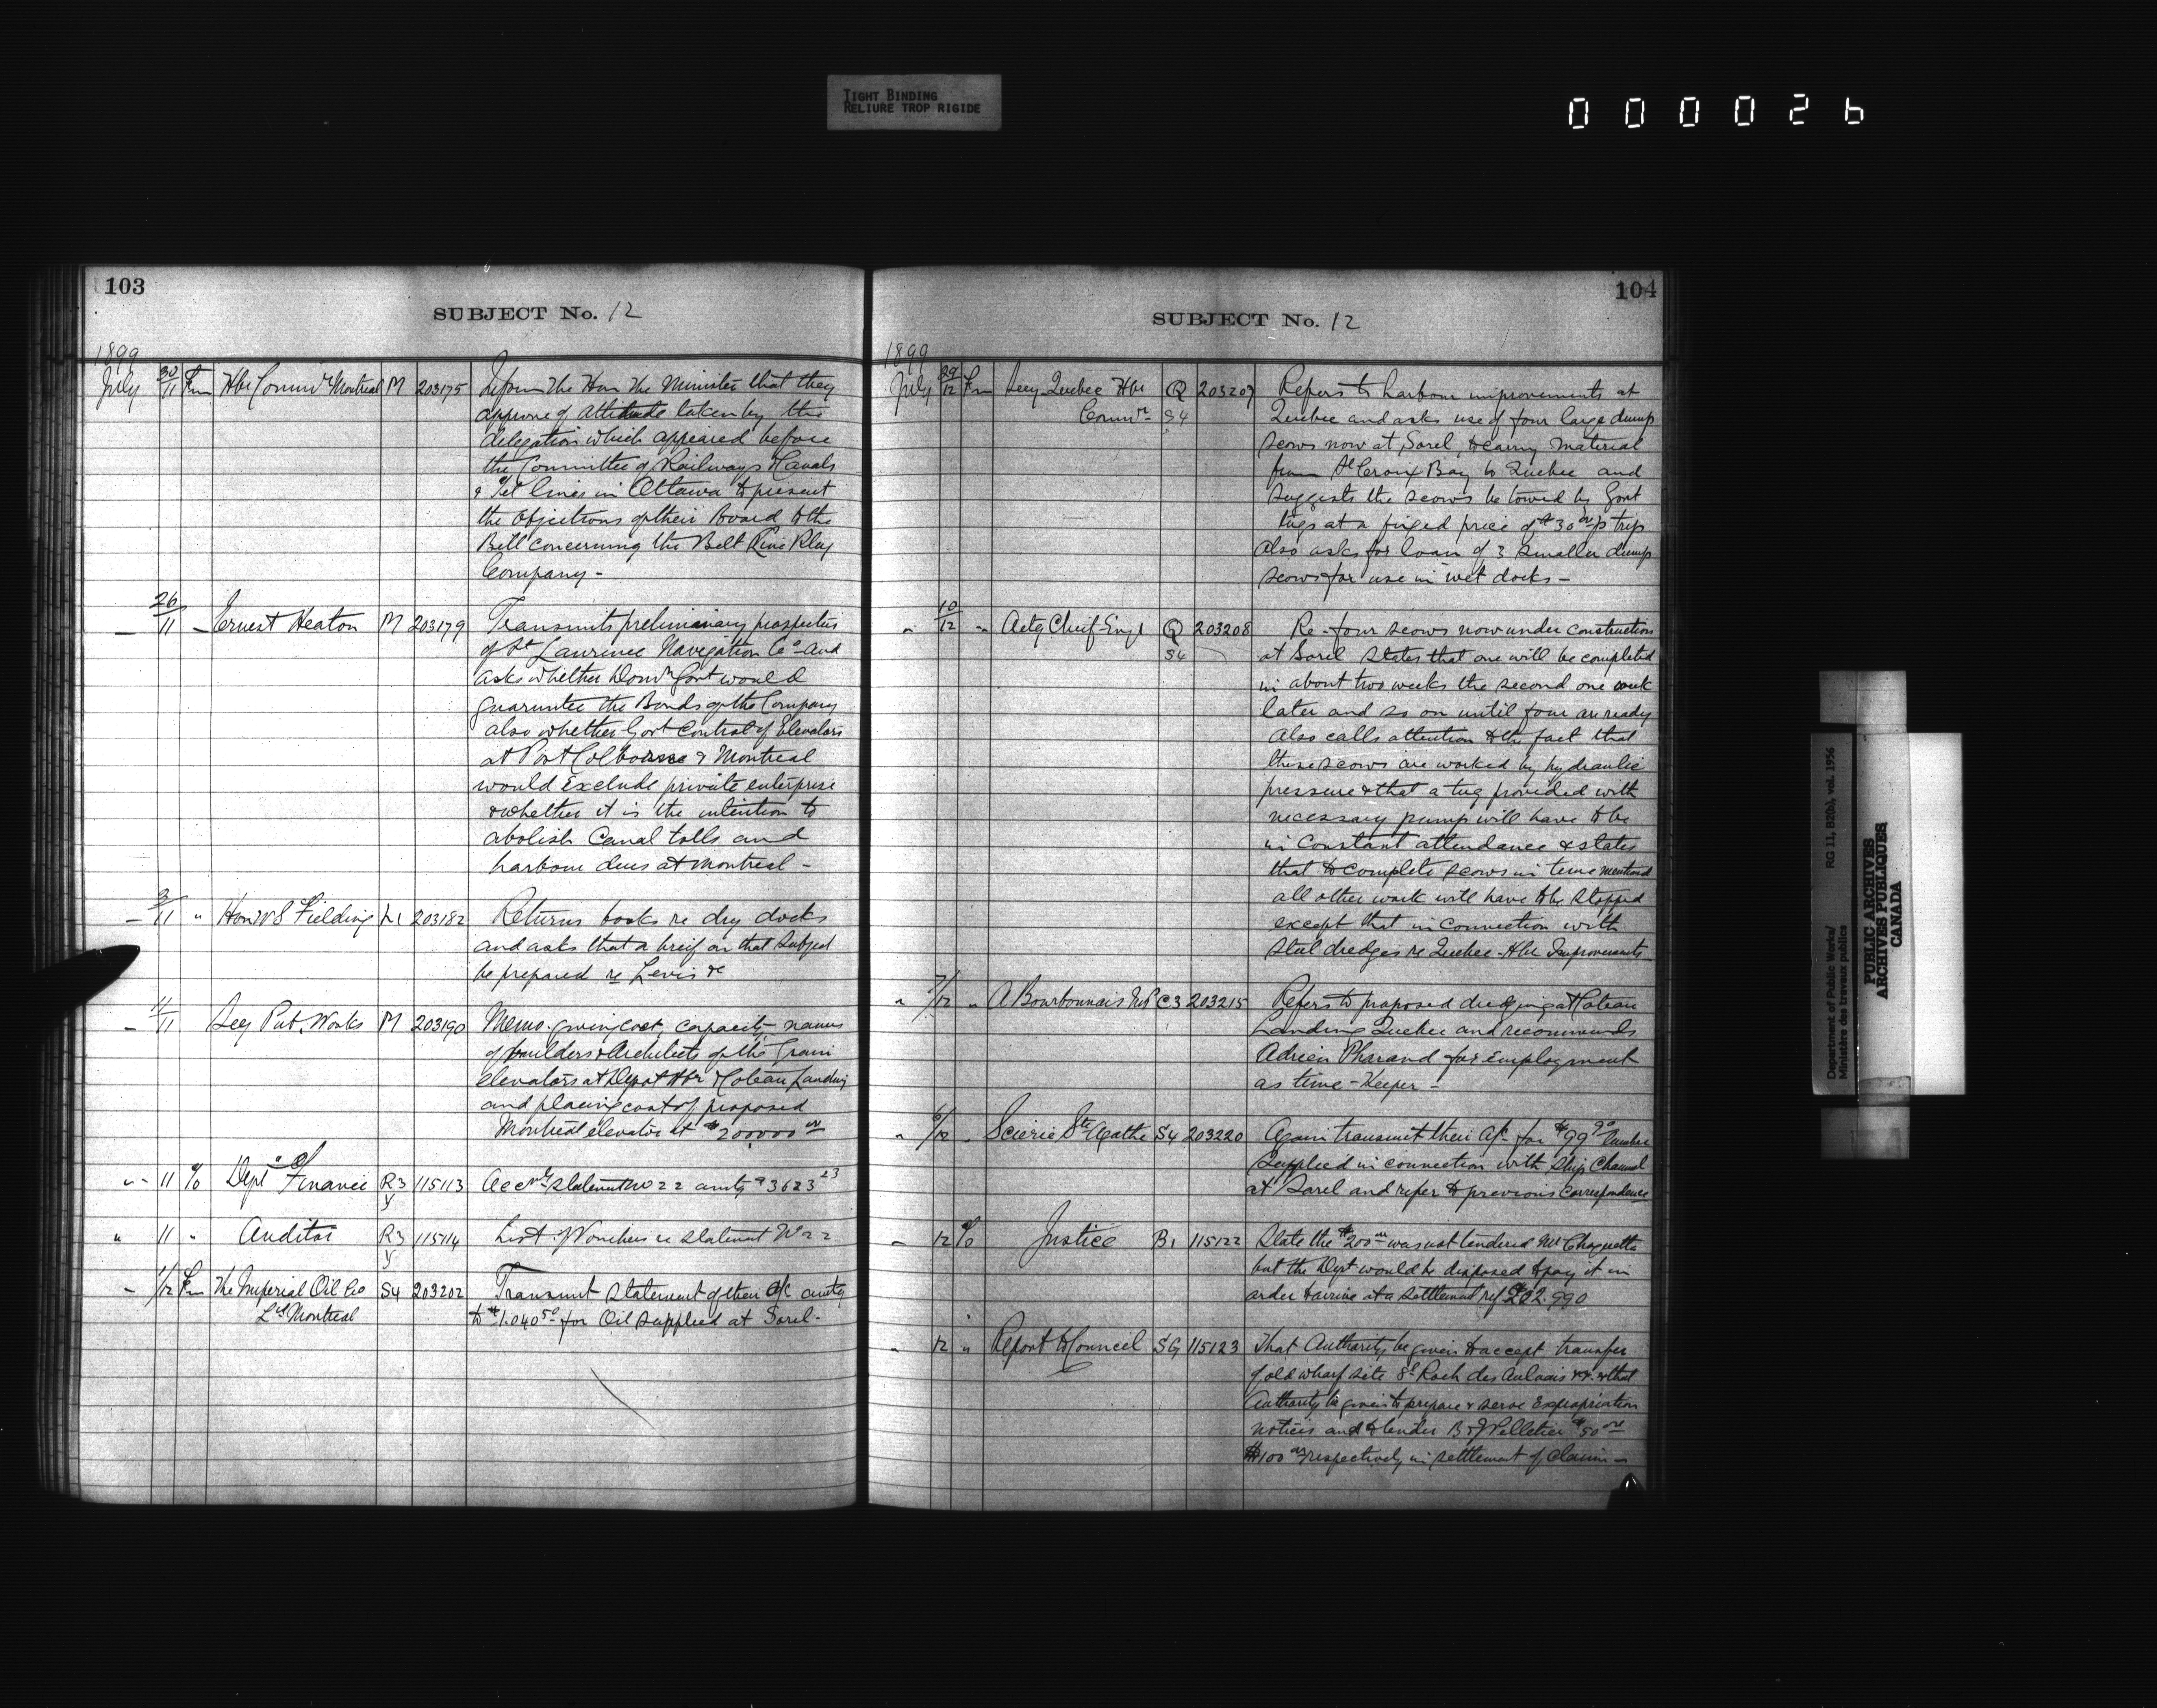 TIGHT BINDING
RELIURE TROP RIGIDE
0 0 0 0 2 6
103
SUBJECT No. 12
1899
July 30/11 Fm Hbr Commrs Montreal M 203175 Inform The Hon The Minister that they
approve of attitude taken by the
delegation which appeared before
the Committee of Railways & Canals
& Tel lines in Ottawa to present
the objections of their Board to the
Bill concerning the Belt Line Rlwy
Company -
26/11 Ernest Heaton M 203179 Transmits preliminary prospectus
of St Laurence Navigation Co and
asks whether Domn Govt would
guaruntee the Bonds of the Company
also whether Govt Control of Elevators
at Port Colborne & Montreal
would Exclude private enterprise
& whether it is the intention to
abolish Canal tolls and
harbour dues at Montreal -
3/11 " Hon W S Fielding 203182 Returns books re dry docks
and asks that a breif on that subject
be prepared re Levis &c
11/11 Secy Pub. Works M 203190 Memo. giving cost, capacity names
of builders & Architects of the Grain
elevators at Depot Hbr & Coteau Landing
and placing cost of proposed
Montreal elevator at $200000 00
" 11 % Dept of Finance R3 115113 Acc statement No 22 amtg $3623 23
y
" 11 " Auditor R3 115114 List Vouchers re statement No 22
y
- 1/12 Fm The Imperial Oil Co S4 203202 Transmit statement of their a/c amtg
Ltd Montreal to $1.040 50 for Oil supplied at Sorel -
104
SUBJECT No. 12
1899
July 29/12 Fm Secy Quebec Hbr Q 203207 Refers to harbour improvements at
Commrs S4 Quebec and asks use of four large dump
scows now at Sorel, to carry material
from St Croix Bay to Quebec and
suggests the scows be towed by Govt
tugs at a fixed price of $30 00 p trip
also asks for loan of 3 smaller dump
scows for use in wet docks -
" 10/12 " Actg Chief Engr Q 203208 Re - four scows now under construction
S4 at Sorel states that one will be completed
in about two weeks the second one week
later and so on until four are ready
Also calls attention to the fact that
these scows are worked by hydraulic
pressure & that a tug provided with
necessary pump will have to be
in Constant attendance & states
that to complete scows in time mentioned
all other work will have to be stopped
except that in connection with
steel dredges re Quebec Hbr Improvements
" 7/12 " A Bourbonnais MP C3 203215 Refers to proposed dredging at Coteau
Landing Quebec and recommends
Adrien Pharand for Employment
as time - Keeper -
" 6/12 " Scierie Ste Agathe S4 203220 Again transmit their a/c for $99 90 lumber
Supplied in connection with Ship Channel
at Sorel and refer to previous correspondence
- 12 % Justice B1 115122 State the $200 00 was not tendered Mr Choquette
but the Dept would be disposed to pay it in
order to arrive at a settlement ref 202.990
" 12 " Report to Council SG 115123 That Authority be given to accept transfer
of old wharf site St Roch des Aulnais &c. & that
Authority be given to prepare & serve Expropriation
notices and to tender B & J Pelletier $50 00
$100 00 respectively in settlement of claim -
Department of Public Works/ RG 11, B2(b), vol. 1956
Ministère des travaux publics
PUBLIC ARCHIVES
ARCHIVES PUBLIQUES
CANADA